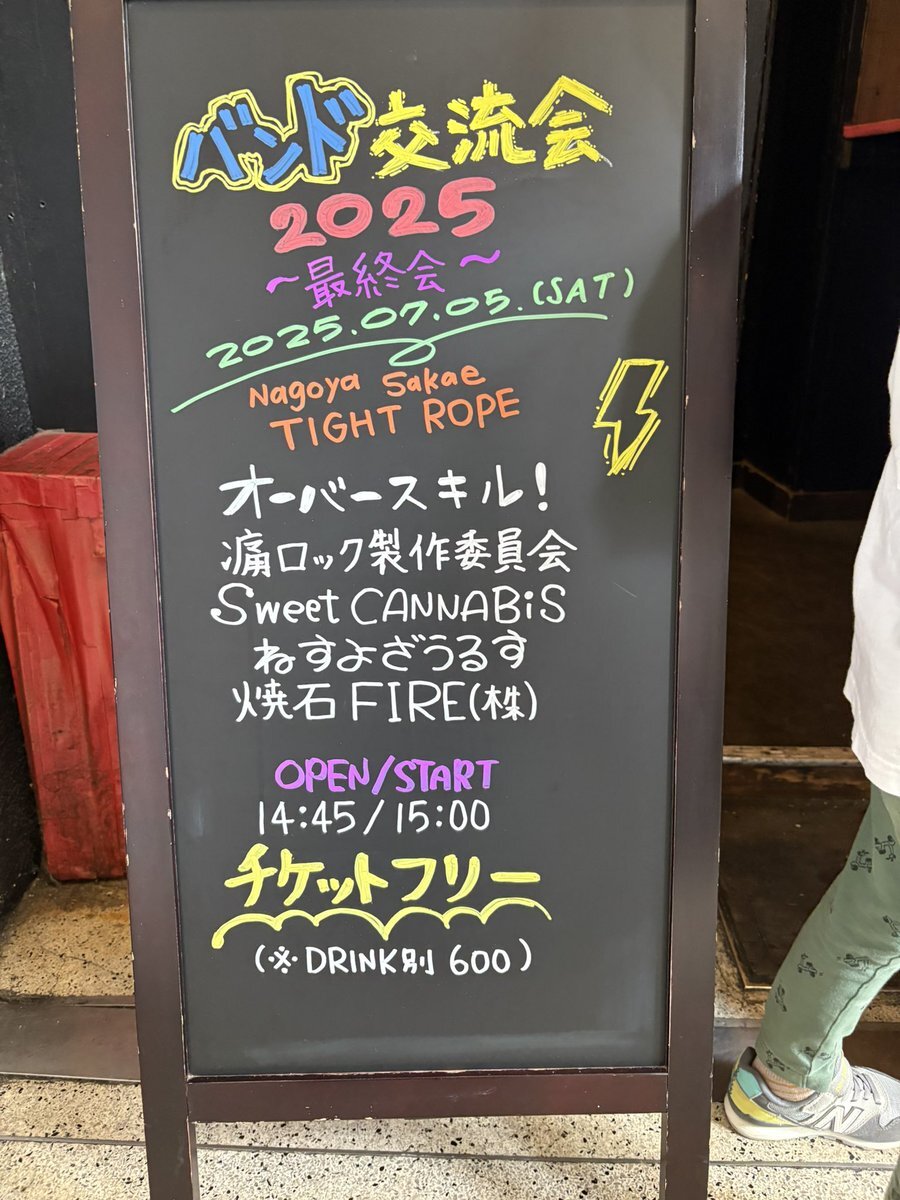 バンド交流会
2025
～最終会～
2025.07.05.(SAT)
Nagoya Sakae
TIGHT ROPE
オーバースキル!
痛ロック製作委員会
Sweet CANNABiS
ねすよざうるす
焼石FIRE(株)
OPEN/START
14:45/15:00
チケットフリー
(※DRINK別 600)
N